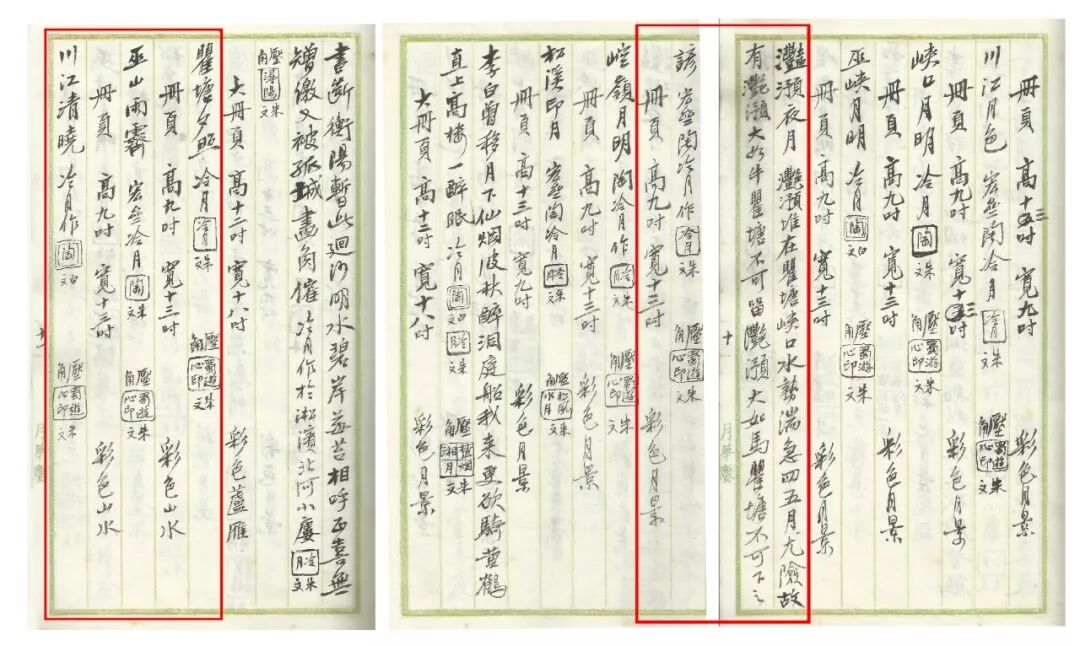 冊頁 高十三吋 寬九吋 彩色月景
川江月色 宏盦陶冷月 冷月 朱文 壓角 蜀遊心印 朱文
冊頁 高九吋 寬十三吋 彩色月景
峽口月明 冷月 陶 朱文 壓角 蜀遊心印 朱文
冊頁 高九吋 寬十三吋 彩色月景
巫峽月明 冷月 陶 白文 壓角 蜀遊心印 朱文
冊頁 高九吋 寬十三吋 彩色月景
灩澦夜月 灩澦堆在瞿塘峽口水勢湍急四五月尤險故
有灩澦大如牛瞿塘不可留灩澦大如馬瞿塘不可下之
十 月華盦
諺 宏盦陶冷月作 冷月 朱文 壓角 蜀遊心印 朱文
冊頁 高九吋 寬十三吋 彩色月景
崆嶺月明 陶冷月作 冷月 朱文 壓角 蜀遊心印 朱文
冊頁 高九吋 寬十三吋 彩色月景
松溪印月 宏盦陶冷月 冷月 朱文 壓角 松風水月 朱文
冊頁 高十三吋 寬九吋 彩色月景
李白曾移月下仙烟波秋醉洞庭船我來更欲騎黃鶴
直上高樓一醉眠 冷月 陶 白文 冷月 朱文 壓角 烟湘月 朱文
大冊頁 高十三吋 寬十八吋 彩色月景
書斷衡陽暫此廻沙明水碧岸莓苔相呼正喜無
矰繳又被孤城畫角催 冷月作於淞濱 小廔 冷月 朱文
壓角 潯陽 朱文
大冊頁 高十二吋 寬十八吋 彩色蘆雁
瞿塘夕照 冷月 冷月 朱文 壓角 蜀遊心印 朱文
冊頁 高九吋 寬十三吋 彩色山水
巫山雨霽 宏盦冷月 陶 朱文 壓角 蜀遊心印 朱文
冊頁 高九吋 寬十三吋 彩色山水
川江清曉 冷月作 陶 白文 壓角 蜀遊心印 朱文
十一 月華盦